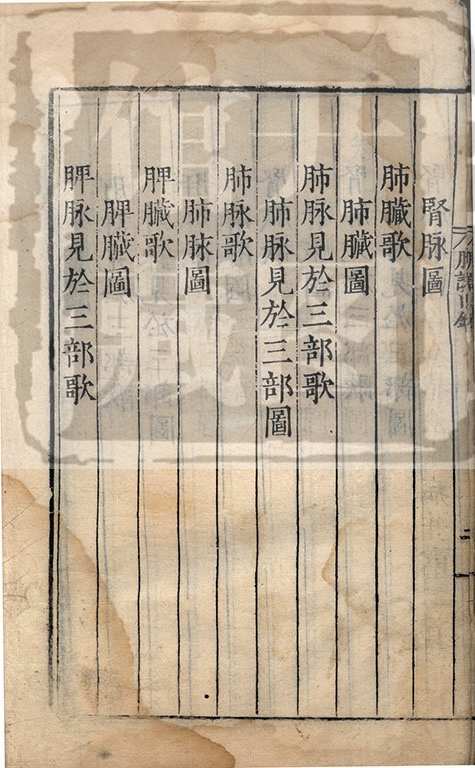 腎脉圖
肺臟歌
肺臟圖
肺脉見於三部歌
肺脉見於三部圖
肺脉歌
肺脉圖
脾臟歌
脾臟圖
脾脉見於三部歌